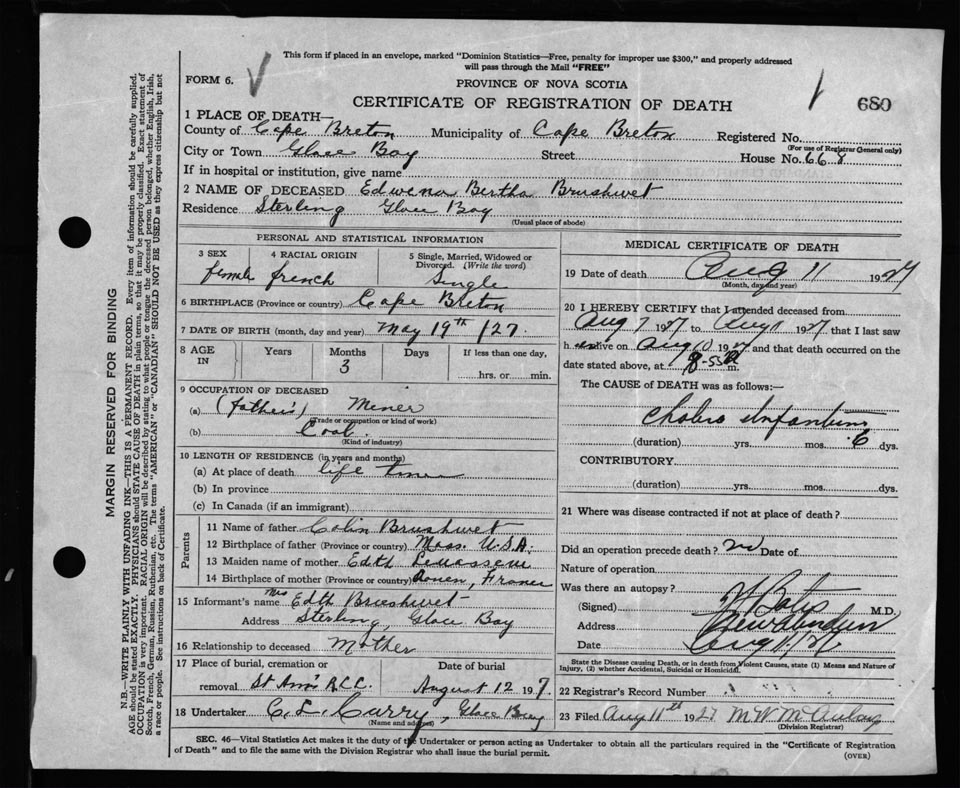 This form if placed in an envelope, marked "Dominion Statistics—Free, penalty for improper use $300," and properly addressed
will pass through the Mail "FREE"
FORM 6.
PROVINCE OF NOVA SCOTIA
CERTIFICATE OF REGISTRATION OF DEATH
680
1 PLACE OF DEATH—
County of Cape Breton Municipality of Cape Breton Registered No.
(For use of Registrar General only)
City or Town Glace Bay Street House No. 668
If in hospital or institution, give name
2 NAME OF DECEASED Edwena Bertha Brushwet
Residence Sterling Glace Bay
(Usual place of abode)
PERSONAL AND STATISTICAL INFORMATION
3 SEX 4 RACIAL ORIGIN 5 Single, Married, Widowed or Divorced. (Write the word)
female french Single
6 BIRTHPLACE (Province or country) Cape Breton
7 DATE OF BIRTH (month, day and year) May 19th /27.
8 AGE IN Years Months Days If less than one day,
3
hrs. or min.
9 OCCUPATION OF DECEASED
(a) (father's) Miner
(Trade or occupation or kind of work)
(b) Coal.
(Kind of industry)
10 LENGTH OF RESIDENCE (in years and months)
(a) At place of death life time
(b) In province
(c) In Canada (if an immigrant)
Parents
11 Name of father Colin Brushwet
12 Birthplace of father (Province or country) Mass. U.S.A.
13 Maiden name of mother Edth
14 Birthplace of mother (Province or country) Rouen, France
15 Informant's name Mrs Edth Brushwet
Address Sterling, Glace Bay
16 Relationship to deceased Mother
17 Place of burial, cremation or Date of burial
removal St Ann's R.C.C. August 12 1927.
18 Undertaker C. L. Curry, Glace Bay
(Name and address)
MEDICAL CERTIFICATE OF DEATH
19 Date of death Aug 11 1927
(Month, day and year)
20 I HEREBY CERTIFY that I attended deceased from
Aug 7 1927 to Aug 11 1927 that I last saw
her alive on Aug 10 1927 and that death occurred on the
date stated above, at 8-55 a m.
The CAUSE of DEATH was as follows:—
Cholera Infantum
(duration) yrs. mos. 6 dys.
CONTRIBUTORY
(duration) yrs. mos. dys.
21 Where was disease contracted if not at place of death?
Did an operation precede death? no Date of
Nature of operation
Was there an autopsy?
(Signed) M.D.
Address
Date Aug 11/27
State the Disease causing Death, or in death from Violent Causes, state (1) Means and Nature of
Injury, (2) whether Accidental, Suicidal or Homicidal.
22 Registrar's Record Number
23 Filed Aug 11th 1927 M W McAulay
(Division Registrar)
SEC. 46—Vital Statistics Act makes it the duty of the Undertaker or person acting as Undertaker to obtain all the particulars required in the "Certificate of Registration
of Death" and to file the same with the Division Registrar who shall issue the burial permit.
(OVER)
MARGIN RESERVED FOR BINDING
N.B.—WRITE PLAINLY WITH UNFADING INK—THIS IS A PERMANENT RECORD. Every item of information should be carefully supplied.
AGE should be stated EXACTLY. PHYSICIANS should STATE CAUSE OF DEATH in plain terms, so that it may be properly classified. Exact statement of
OCCUPATION is very important. RACIAL ORIGIN will be described by stating to what people or tongue the deceased person belonged, whether English, Irish,
Scotch, French, German, Russian, Ruthenian, etc. The terms "AMERICAN" or "CANADIAN" SHOULD NOT BE USED as they express citizenship but not
a race or people. See instructions on back of Certificate.